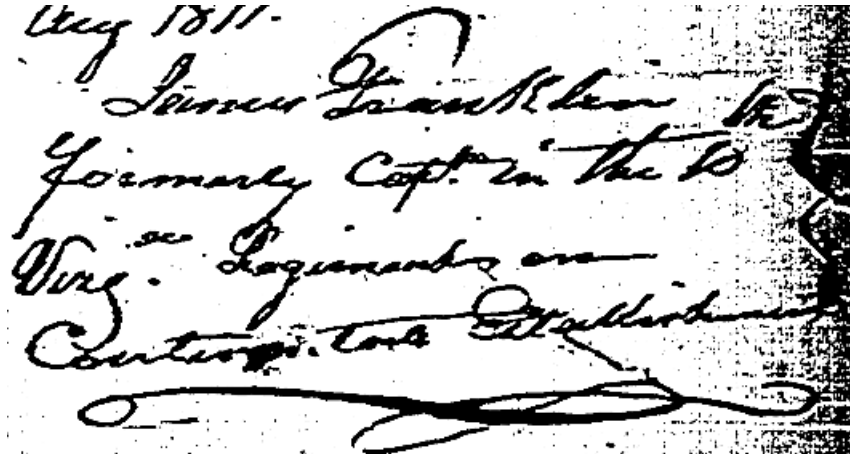 Aug 1811.
James Franklin
formerly Capt. in the 10
Virga. Regiments on
Continental Establishment